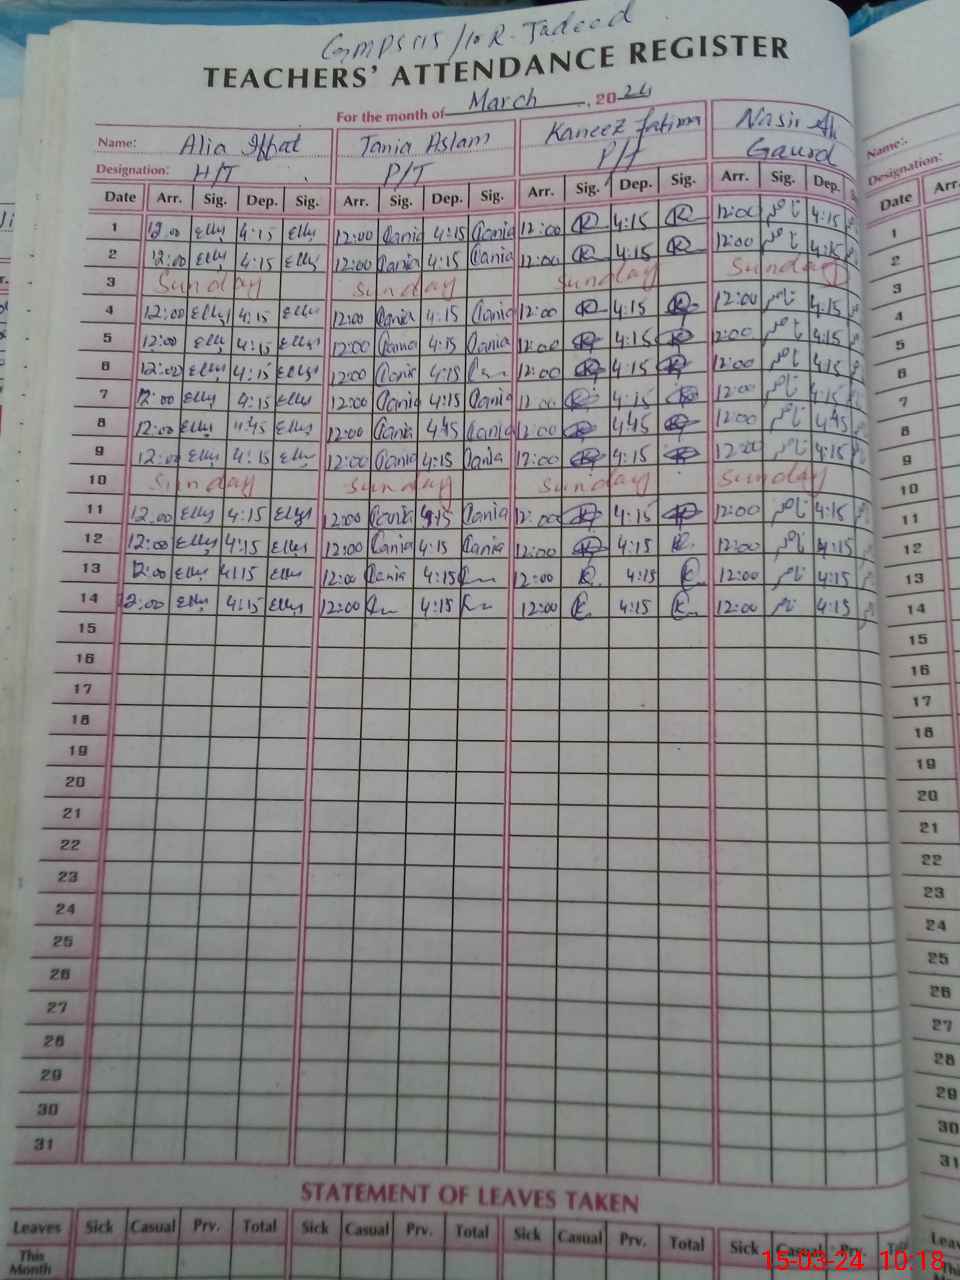 TEACHERS' ATTENDANCE REGISTER
For the month of March, 2024
Name: Alia Iffat Tania Aslam Kaneez Fatima Nasir Ali
Designation: H/T P/T P/T Gaurd
Date Arr. Sig. Dep. Sig. Arr. Sig. Dep. Sig. Arr. Sig. Dep. Sig. Arr. Sig. Dep.
1 12:00 Elly 4:15 Elly 12:00 Tania 4:15 Tania 12:00 K 4:15 K 12:00 ناصر 4:15
2 12:00 Elly 4:15 Elly 12:00 Tania 4:15 Tania 12:00 K 4:15 K 12:00 ناصر 4:15
3 Sunday Sunday Sunday Sunday
4 12:00 Elly 4:15 Elly 12:00 Tania 4:15 Tania 12:00 K 4:15 K 12:00 ناصر 4:15
5 12:00 Elly 4:15 Elly 12:00 Tania 4:15 Tania 12:00 K 4:15 K 12:00 ناصر 4:15
6 12:00 Elly 4:15 Elly 12:00 Tania 4:15 12:00 K 4:15 K 12:00 ناصر 4:15
7 12:00 Elly 4:15 Elly 12:00 Tania 4:15 Tania 12:00 K 4:15 K 12:00 ناصر 4:15
8 12:00 Elly 4:45 Elly 12:00 Tania 4:45 Tania 12:00 K 4:45 K 12:00 ناصر 4:45
9 12:00 Elly 4:15 Elly 12:00 Tania 4:15 Tania 12:00 K 4:15 K 12:00 ناصر 4:15
10 Sunday Sunday Sunday Sunday
11 12:00 Elly 4:15 Elly 12:00 Tania 4:15 Tania 12:00 K 4:15 K 12:00 ناصر 4:15
12 12:00 Elly 4:15 Elly 12:00 Tania 4:15 Tania 12:00 K 4:15 K 12:00 ناصر 4:15
13 12:00 Elly 4:15 Elly 12:00 Tania 4:15 12:00 K 4:15 K 12:00 ناصر 4:15
14 12:00 Elly 4:15 Elly 12:00 4:15 12:00 K 4:15 K 12:00 ناصر 4:15
15
16
17
18
19
20
21
22
23
24
25
26
27
28
29
30
31
STATEMENT OF LEAVES TAKEN
Leaves Sick Casual Prv. Total Sick Casual Prv. Total Sick Casual Prv. Total Sick Casual Prv.
This Month
Name:
Designation:
Date Arr.
1
2
3
4
5
6
7
8
9
10
11
12
13
14
15
16
17
18
19
20
21
22
23
24
25
26
27
28
29
30
31
15-03-24 10:18